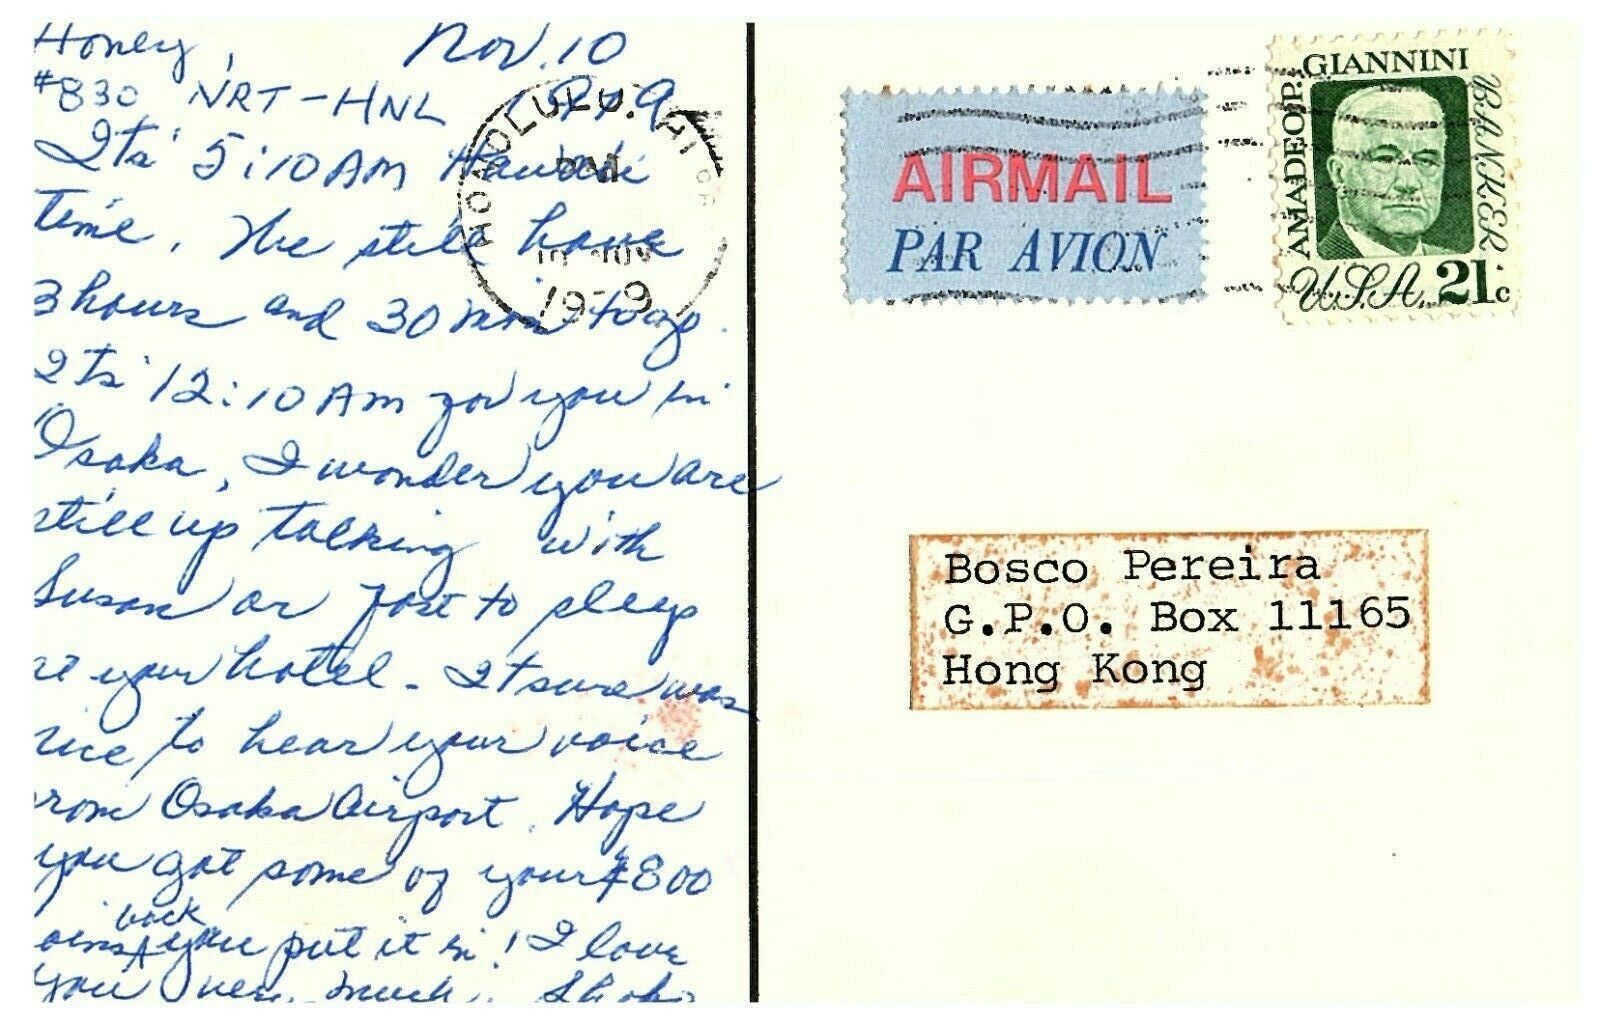 Honey, Nov. 10
#830 NRT-HNL 1979
Its' 5:10 AM Hawaii
time. We still have
3 hours and 30 min to go.
Its' 12:10 AM for you in
Osaka, I wonder you are
still up talking with
Susan or just to sleep
at your hotel. It sure was
nice to hear your voice
from Osaka Airport. Hope
you got some of your ¥800
coins back you put it in! I love
you very much.
HONOLULU, HI
PM
10 NOV
1979
AIRMAIL
PAR AVION
AMADEO P. GIANNINI
BANKER
U.S.A. 21c
Bosco Pereira
G.P.O. Box 11165
Hong Kong